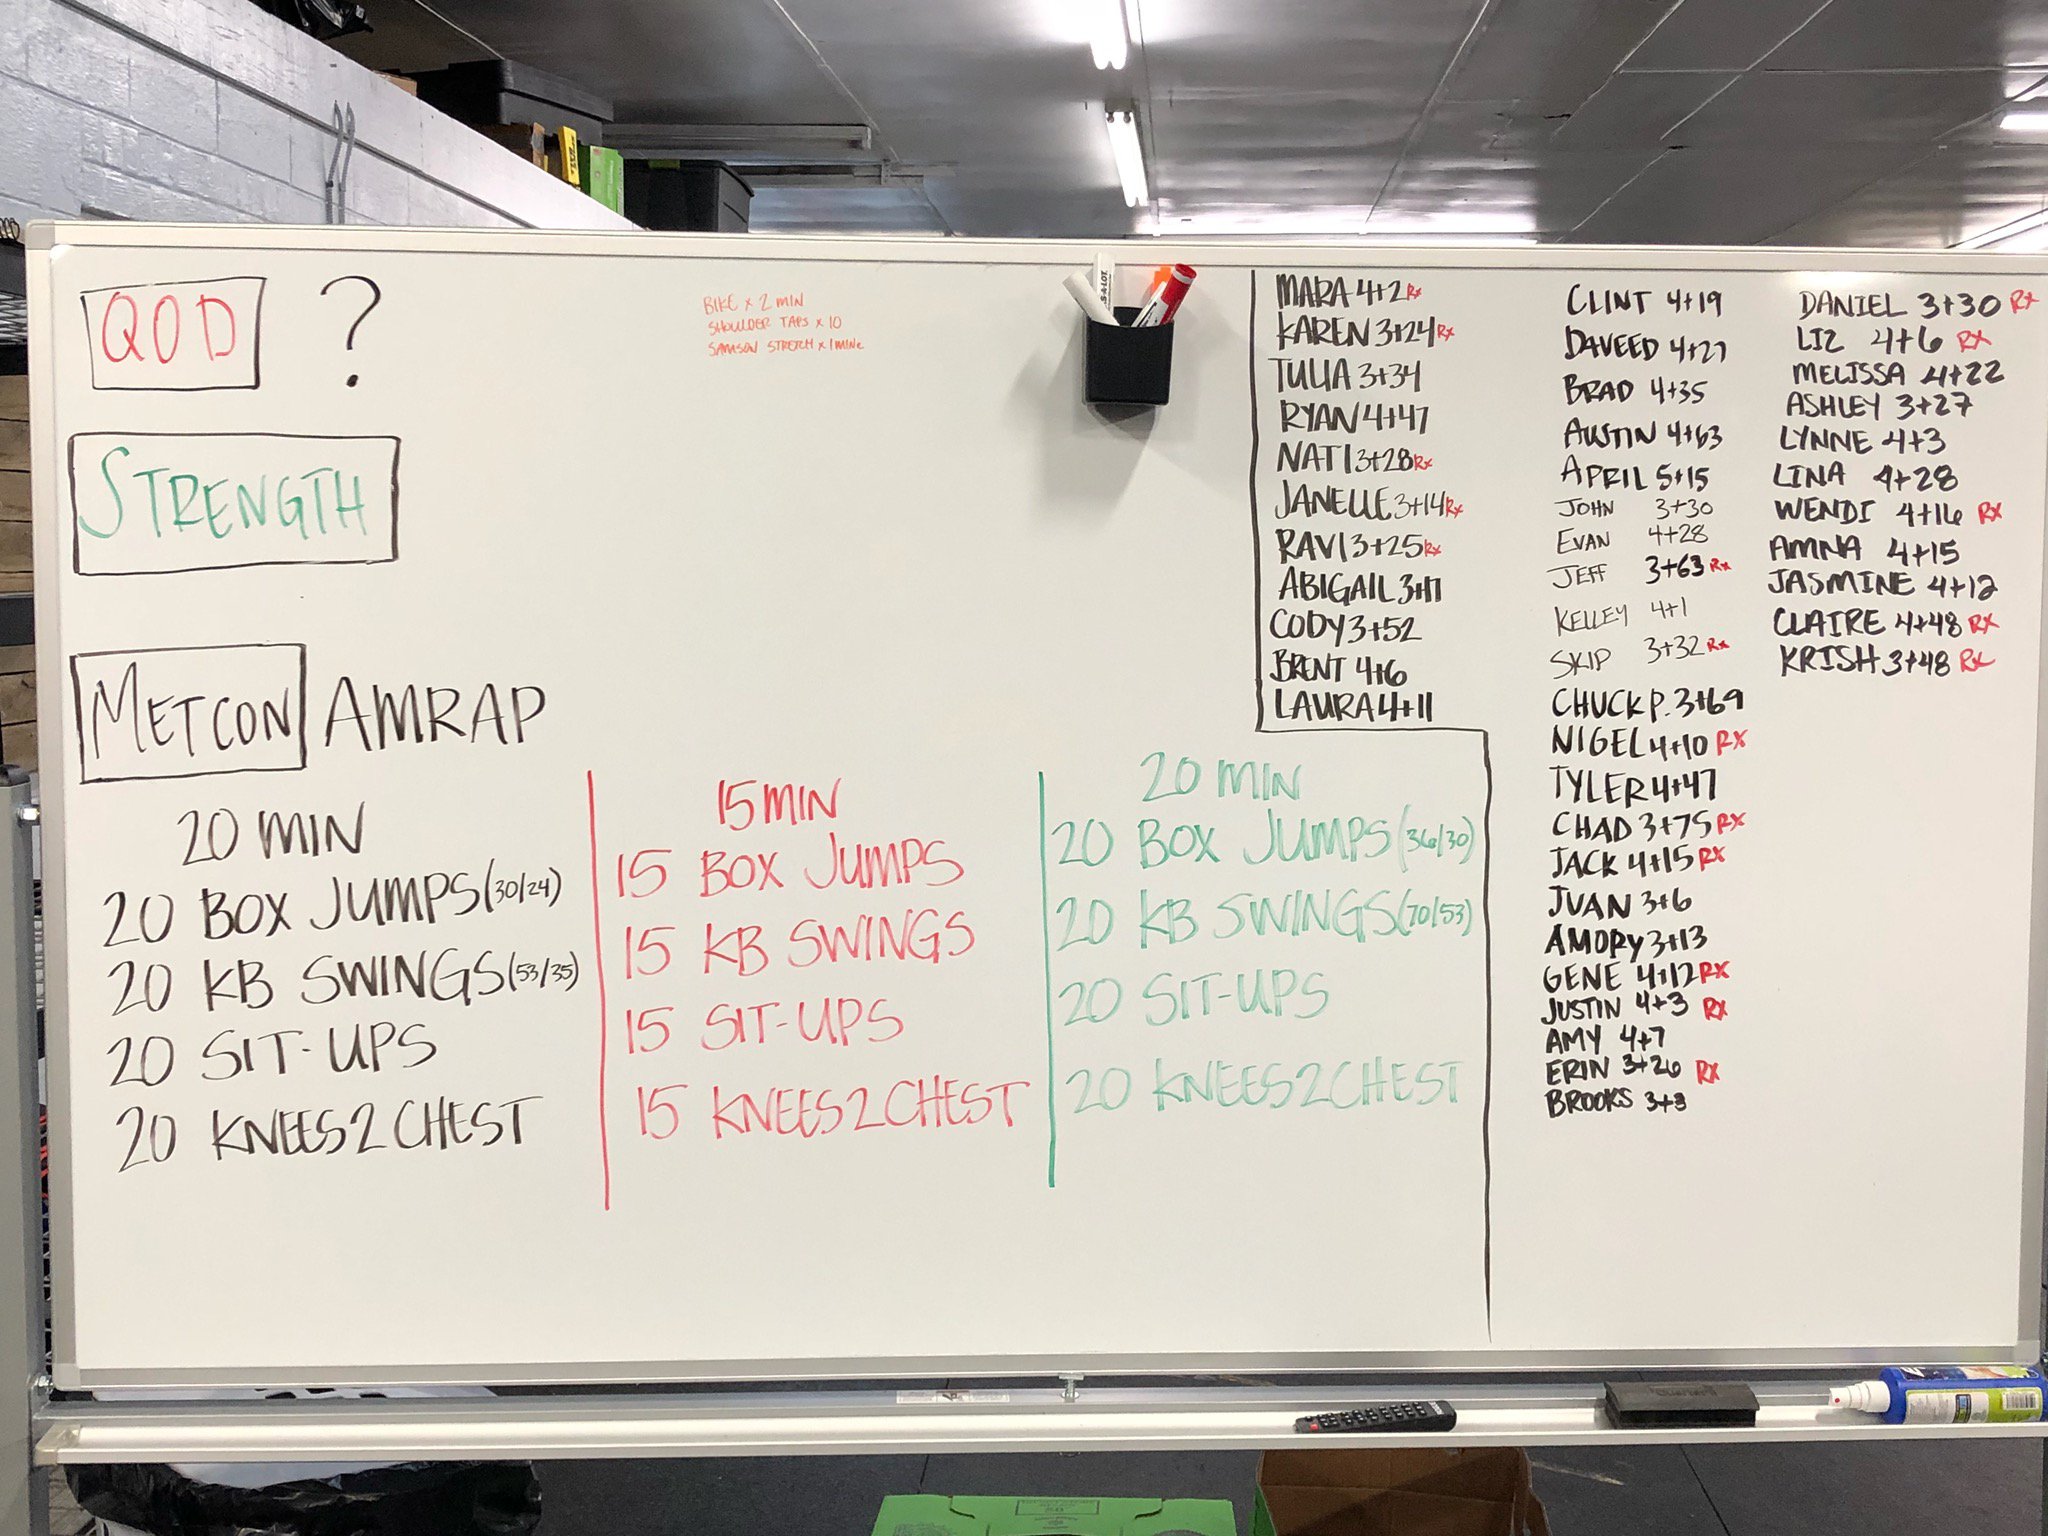 QOD ?
BIKE x 2 MIN
SHOULDER TAPS x 10
SAMSON STRETCH x 1 MIN
STRENGTH
METCON AMRAP
20 MIN
20 BOX JUMPS (30/24)
20 KB SWINGS (53/35)
20 SIT-UPS
20 KNEES2CHEST
15 MIN
15 BOX JUMPS
15 KB SWINGS
15 SIT-UPS
15 KNEES2CHEST
20 MIN
20 BOX JUMPS (36/30)
20 KB SWINGS (70/53)
20 SIT-UPS
20 KNEES2CHEST
MARA 4+2 Rx
KAREN 3+24 Rx
JULIA 3+34
RYAN 4+47
NATI 3+28 Rx
JANELLE 3+14 Rx
RAVI 3+25 Rx
ABIGAIL 3+17
CODY 3+52
BRENT 4+6
LAURA 4+11
CLINT 4+19
DAVEED 4+27
BRAD 4+35
AUSTIN 4+63
APRIL 5+15
JOHN 3+30
EVAN 4+28
JEFF 3+63 Rx
KELLEY 4+1
SKIP 3+32 Rx
CHUCK P. 3+69
NIGEL 4+10 RX
TYLER 4+47
CHAD 3+75 RX
JACK 4+15 RX
JUAN 3+6
AMORY 3+13
GENE 4+12 RX
JUSTIN 4+3 RX
AMY 4+7
ERIN 3+26 RX
BROOKS 3+3
DANIEL 3+30 Rx
LIZ 4+6 RX
MELISSA 4+22
ASHLEY 3+27
LYNNE 4+3
LINA 4+28
WENDI 4+16 RX
AMNA 4+15
JASMINE 4+12
CLAIRE 4+48 RX
KRISH 3+48 Rx